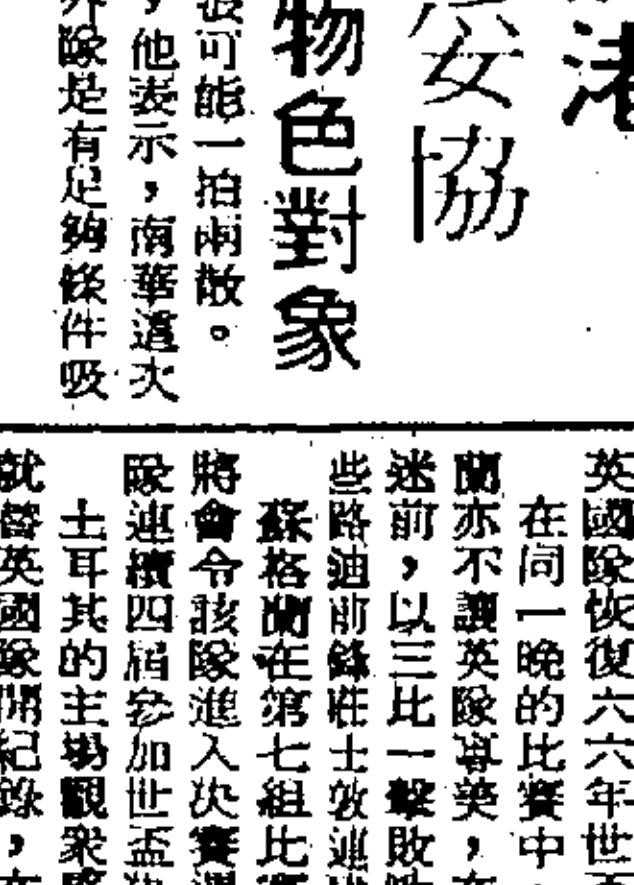 渚
安協
物色對象
可能一拍兩散。
，他表示，南華這次
隊是有足夠條件吸
英國隊恢復六六年世
在同一晚的比賽中
蘭亦不讓英隊專美，
迷前，以三比一擊敗
些路迪前鋒莊士敦連
蘇格蘭在第七組比賽
將會令該隊進入決賽
隊連續四屆參加世盃
土耳其的主場觀衆
就替英國隊開紀錄，